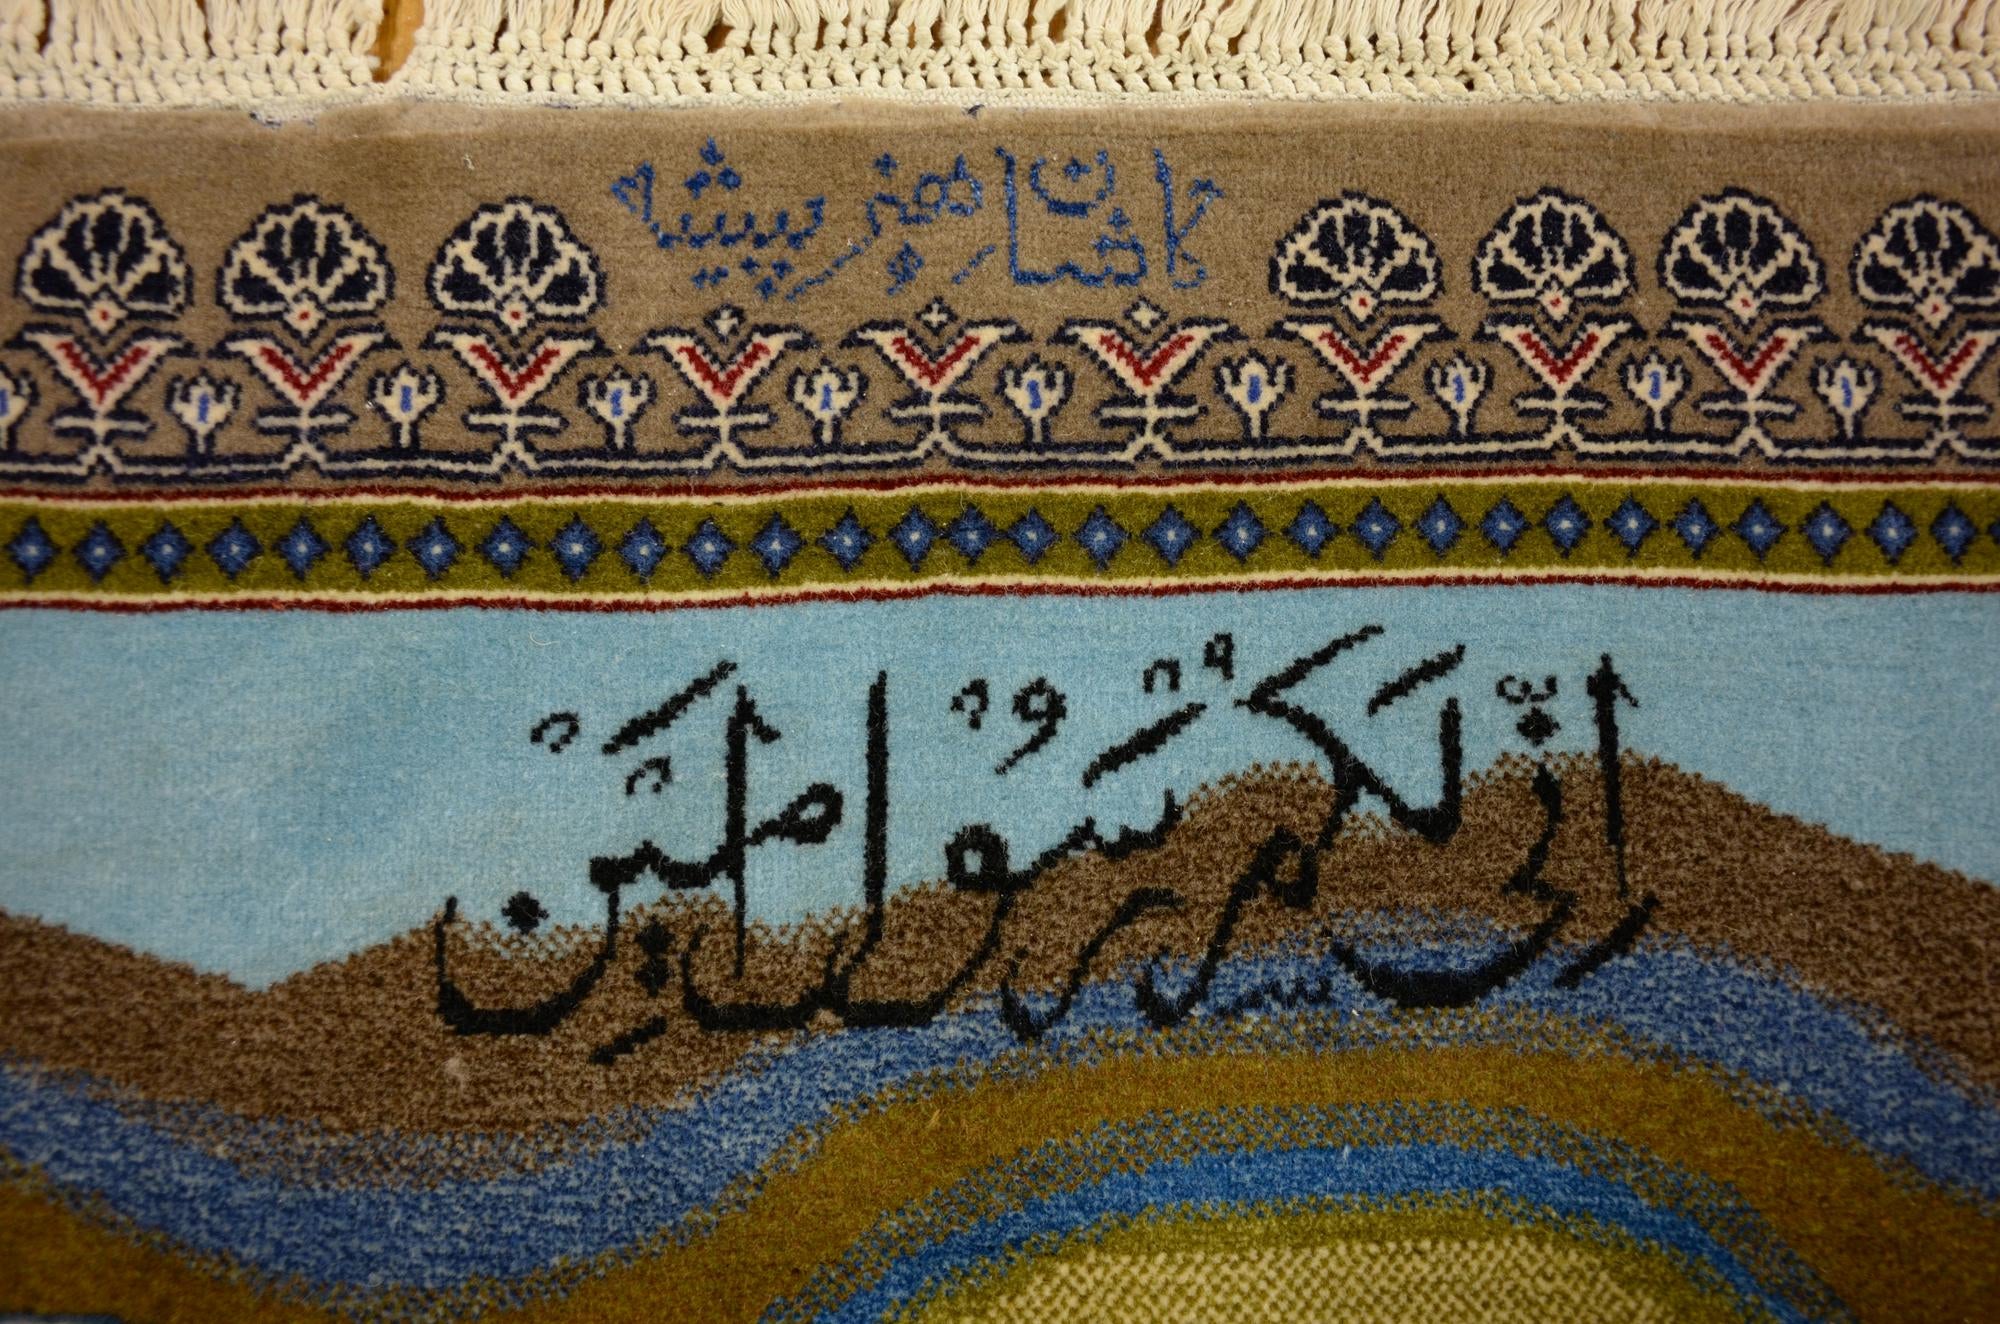 کاشان هنرپیشه
اِنّی لَکُم رَسُولٌ اَمینٌ